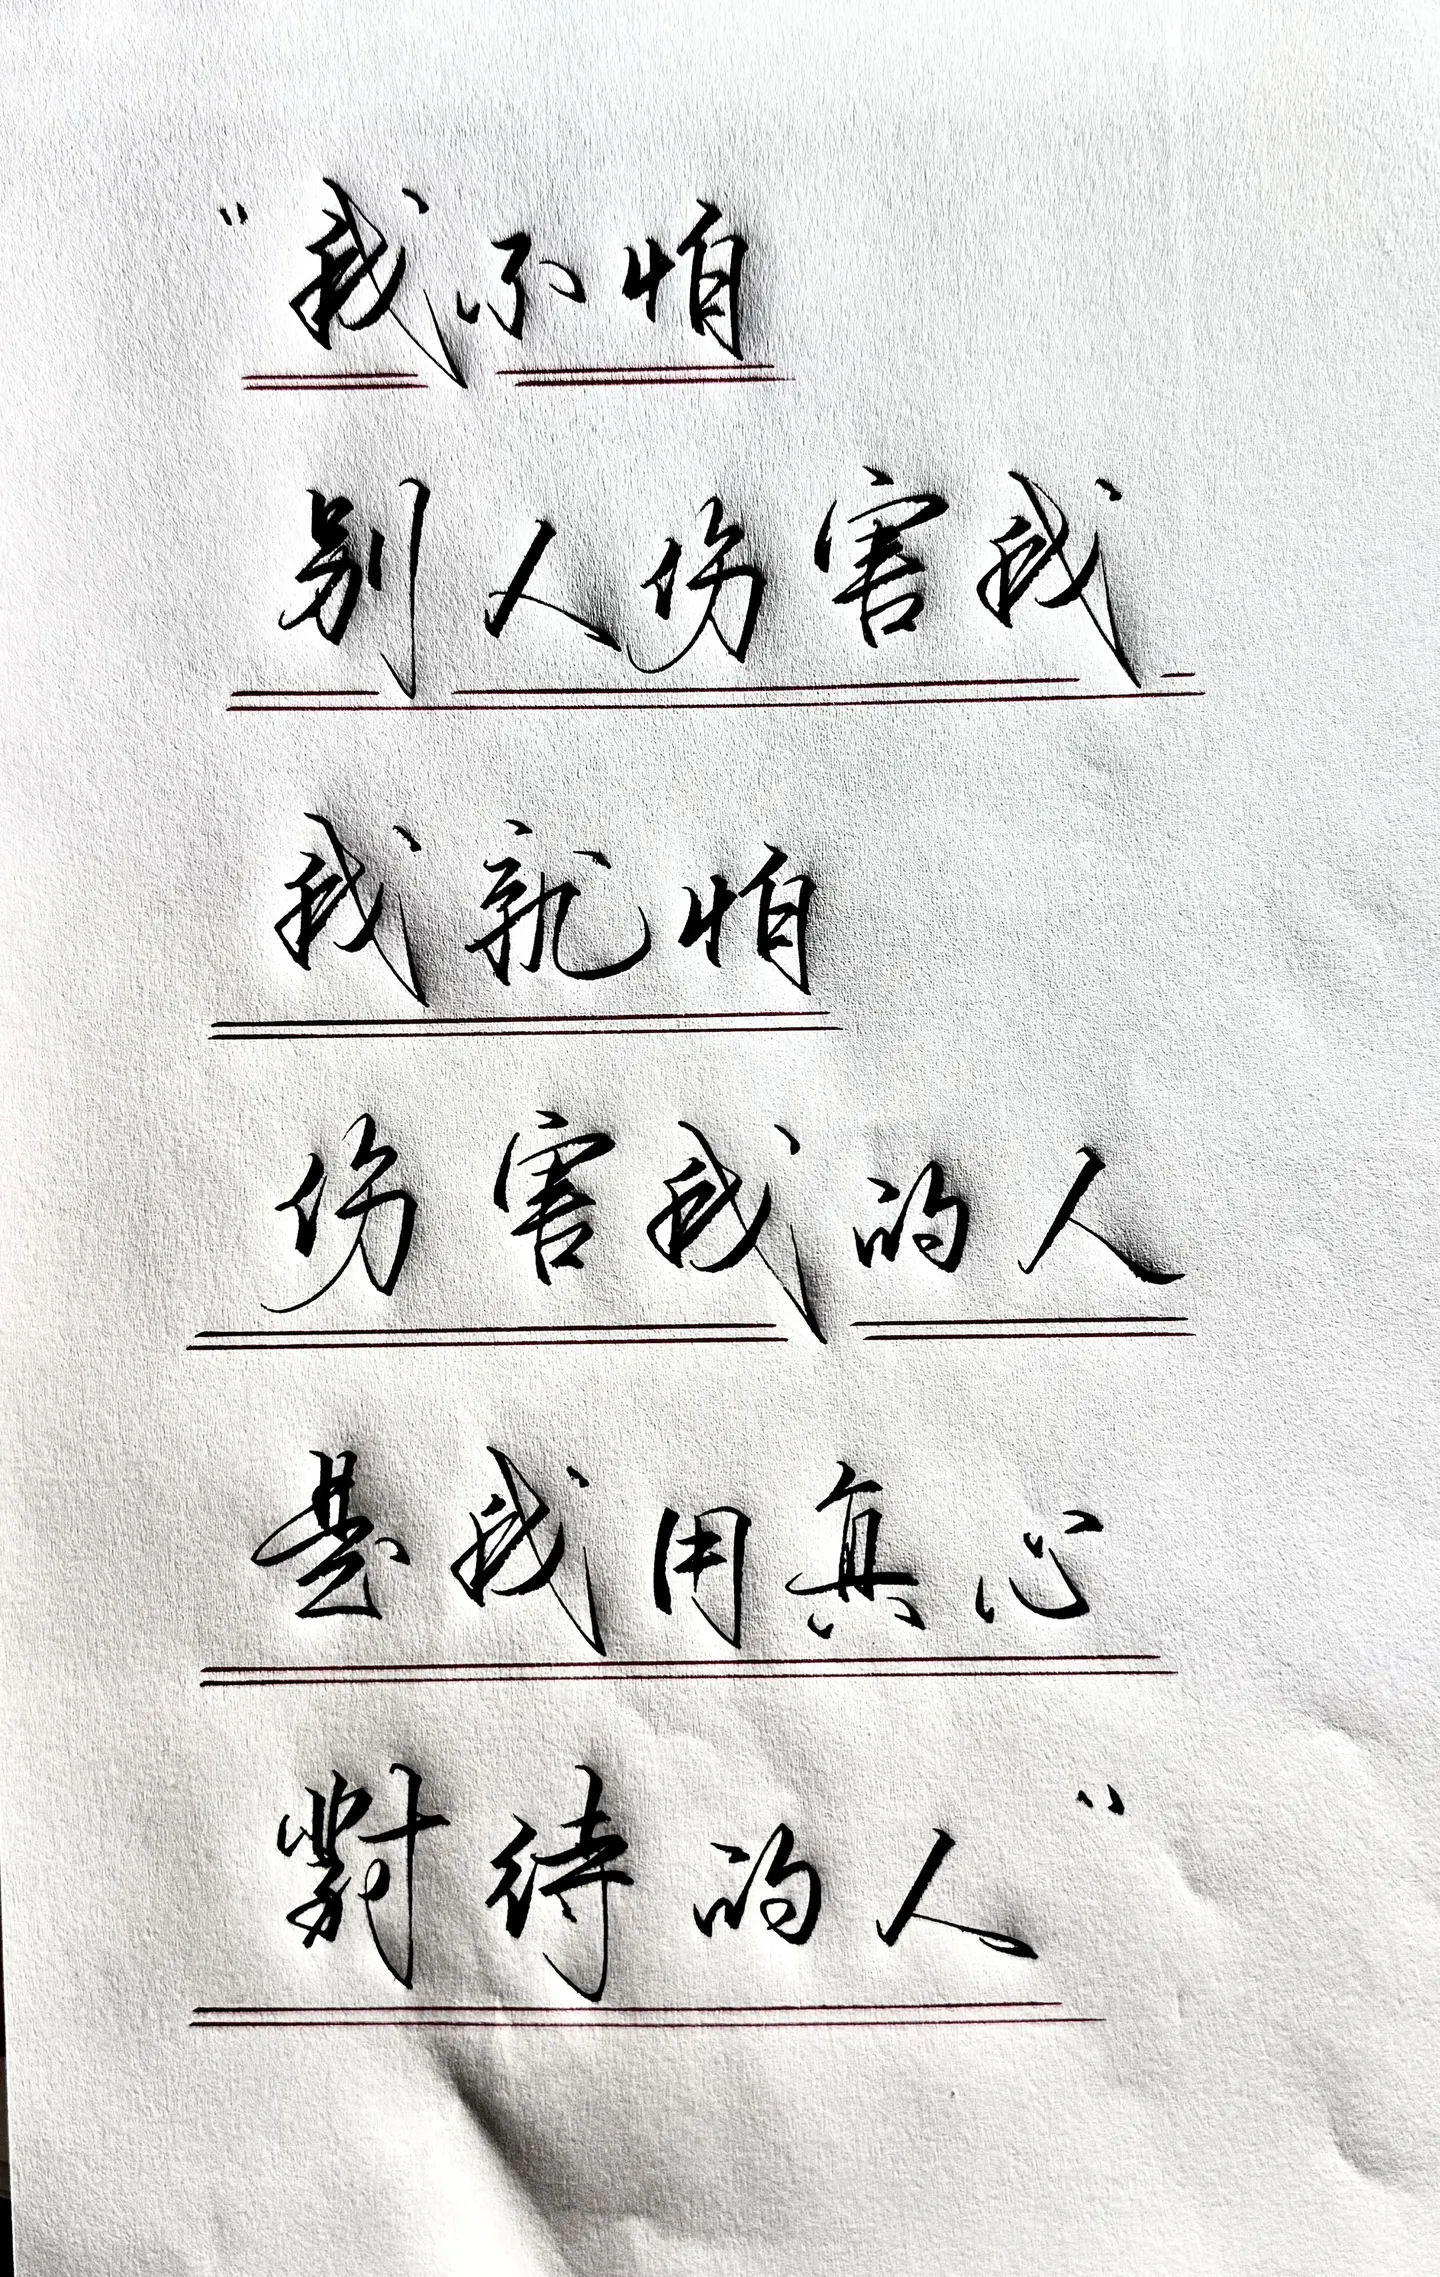 “我不怕
别人伤害我
我就怕
伤害我的人
是我用真心
對待的人”